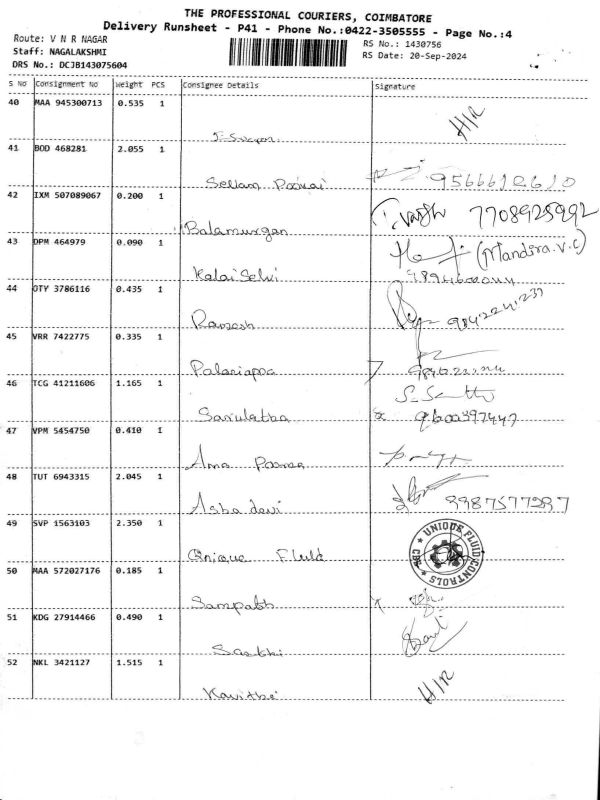 THE PROFESSIONAL COURIERS, COIMBATORE
Delivery Runsheet - P41 - Phone No.:0422-3505555 - Page No.:4
Route: V N R NAGAR
RS No.: 1430756
Staff: NAGALAKSHMI
RS Date: 20-Sep-2024
DRS No.: DCJB143075604
S No Consignment No Weight PCS Consignee Details Signature
40 MAA 945300713 0.535 1
H/R
41 BOD 468281 2.055 1
Sellam Poonai
42 IXM 507089067 0.200 1
7708925992
Balamurgan
43 DPM 464979 0.090 1
Kalai Selvi
44 OTY 3786116 0.435 1
Ramesh
45 VRR 7422775 0.335 1
Palaniappa
46 TCG 41211606 1.165 1
Sarulatha
9600397447
47 VPM 5454750 0.410 1
Ama
48 TUT 6943315 2.045 1
Asha devi
49 SVP 1563103 2.350 1
UNIQUE FLUID CONTROLS
CBE
Unique Fluid
50 MAA 572027176 0.185 1
Sampath
51 KDG 27914466 0.490 1
Sakthi
52 NKL 3421127 1.515 1
H/R
Kavitha